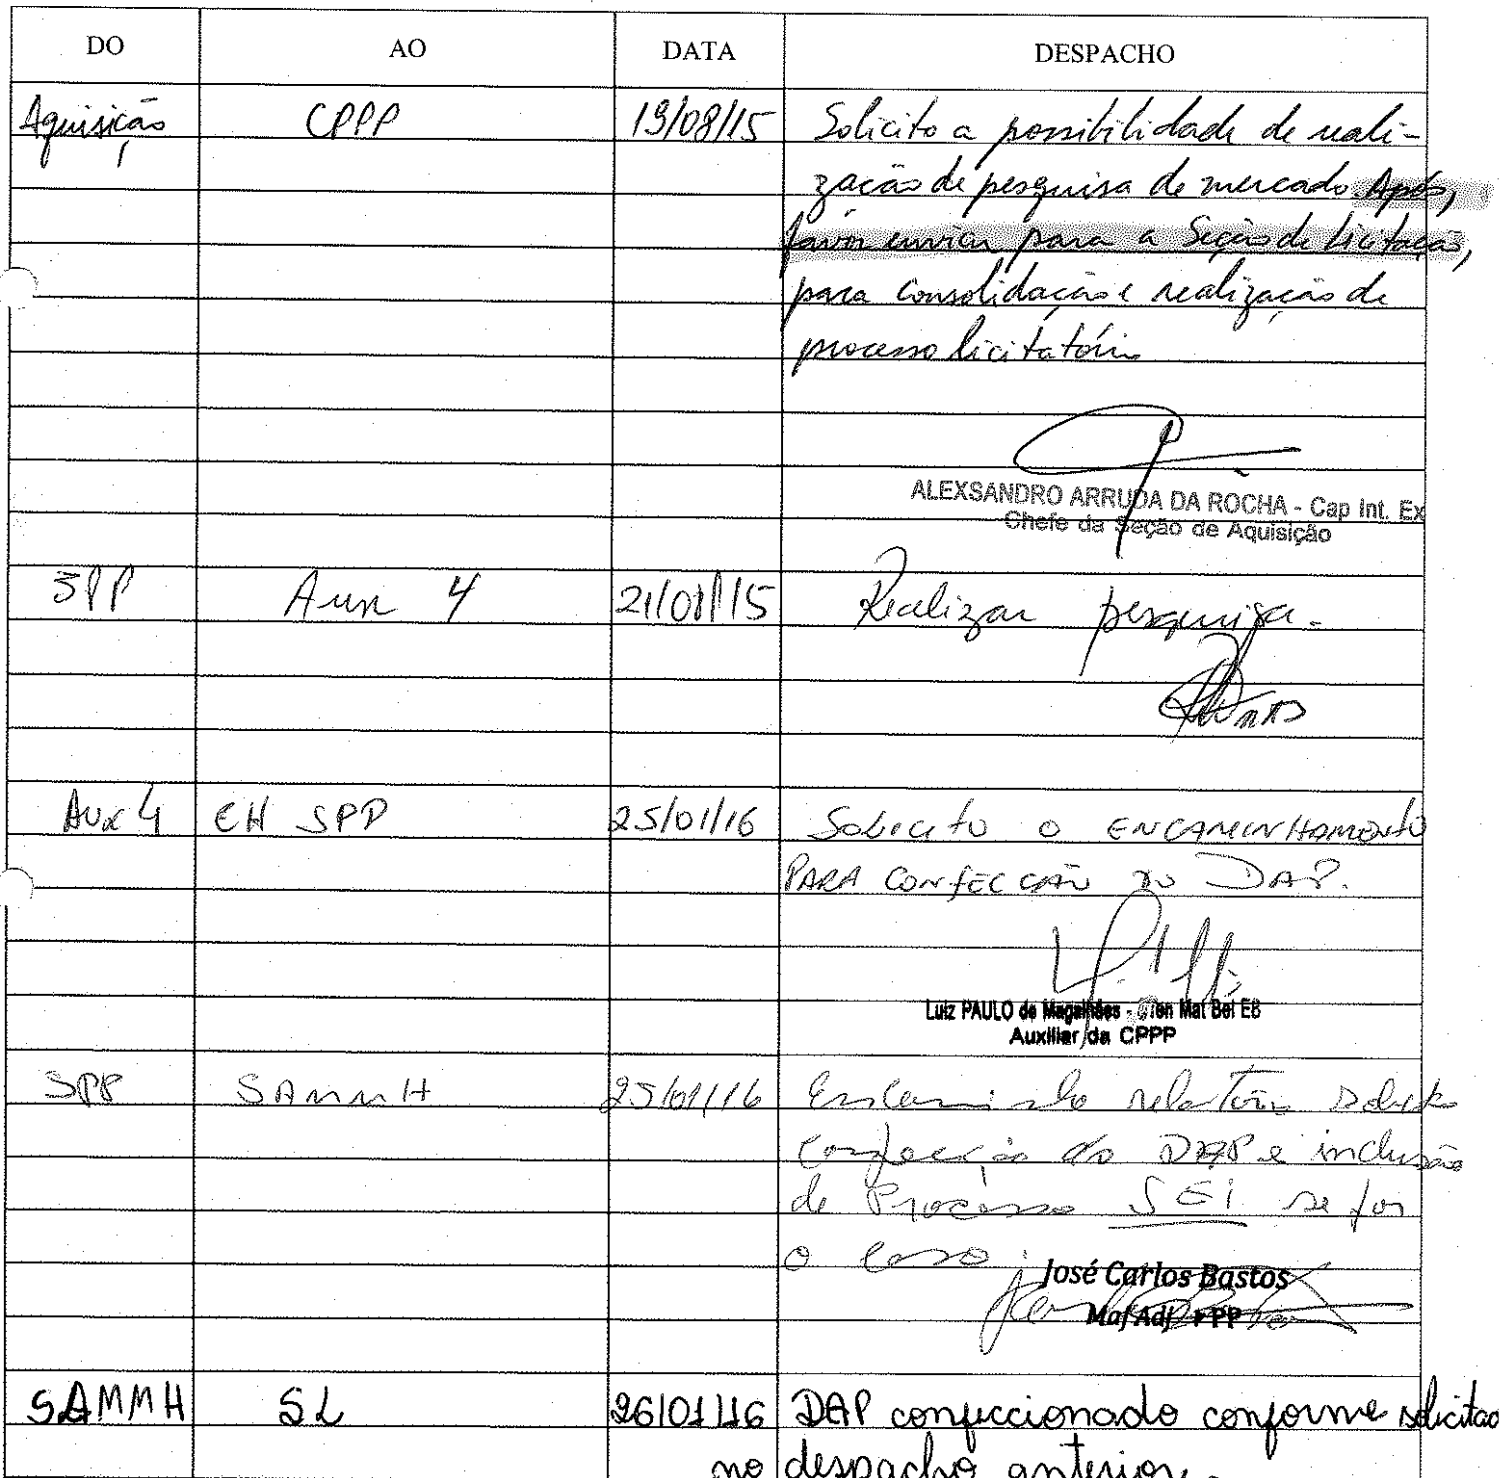 DO AO DATA DESPACHO
Aquisição CPPP 19/08/15 Solicito a possibilidade de reali-
zação de pesquisa de mercado Após,
favor enviar para a Seção de Licitação,
para consolidação e realização de
processo licitatório
ALEXSANDRO ARRUDA DA ROCHA - Cap Int. Ex
Chefe da Seção de Aquisição
SPP Aux 4 21/08/15 Realizar pesquisa.
Aux 4 CH SPP 25/01/16 Solicito o ENCAMINHAMENTO
PARA CONFECÇÃO DO DAP.
Luiz PAULO de Magalhães - Ten Mat Bel EB
Auxiliar da CPPP
SPP SAMMH 25/01/16 Encaminho relatório Solicito
confecção do DAP e inclusão
de Processo SEI se for
o caso.
José Carlos Bastos
Maj Adj PP
SAMMH SL 26/01/16 DAP confeccionado conforme solicitad
no despacho anterior.